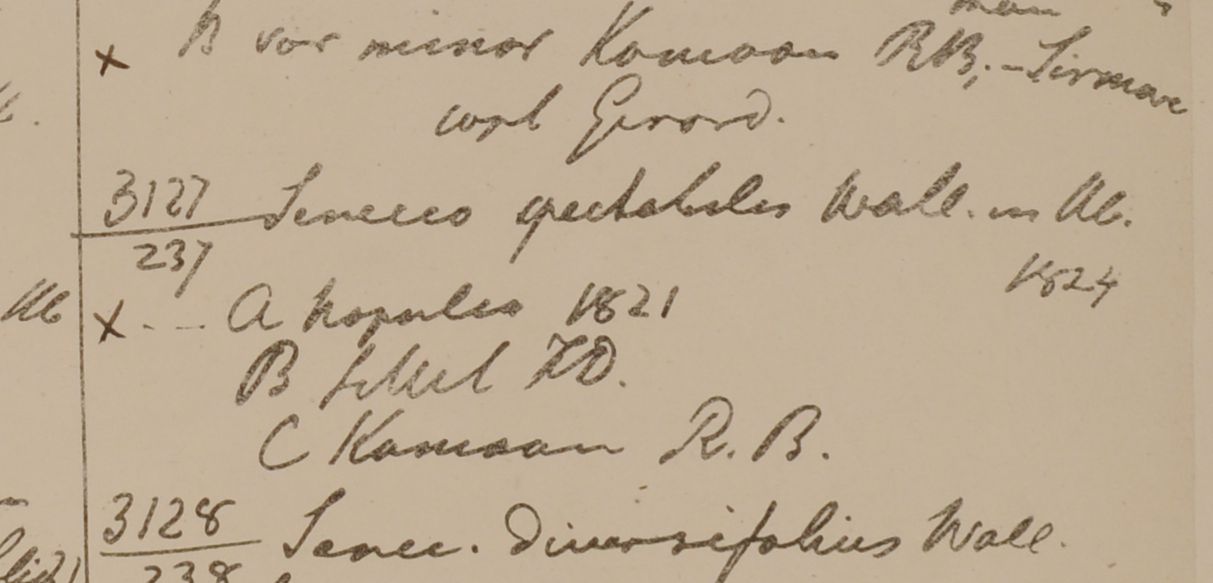 × B var minor Kamaon RB; - Sirmore
Gerard.
3127 Senecio spectabilis Wall. in Hb.
237
1824
Hb × - - - A Napalia 1821
B Silhet FD.
C Kamaon R. B.
3128 Senec. diversifolius Wall.
238